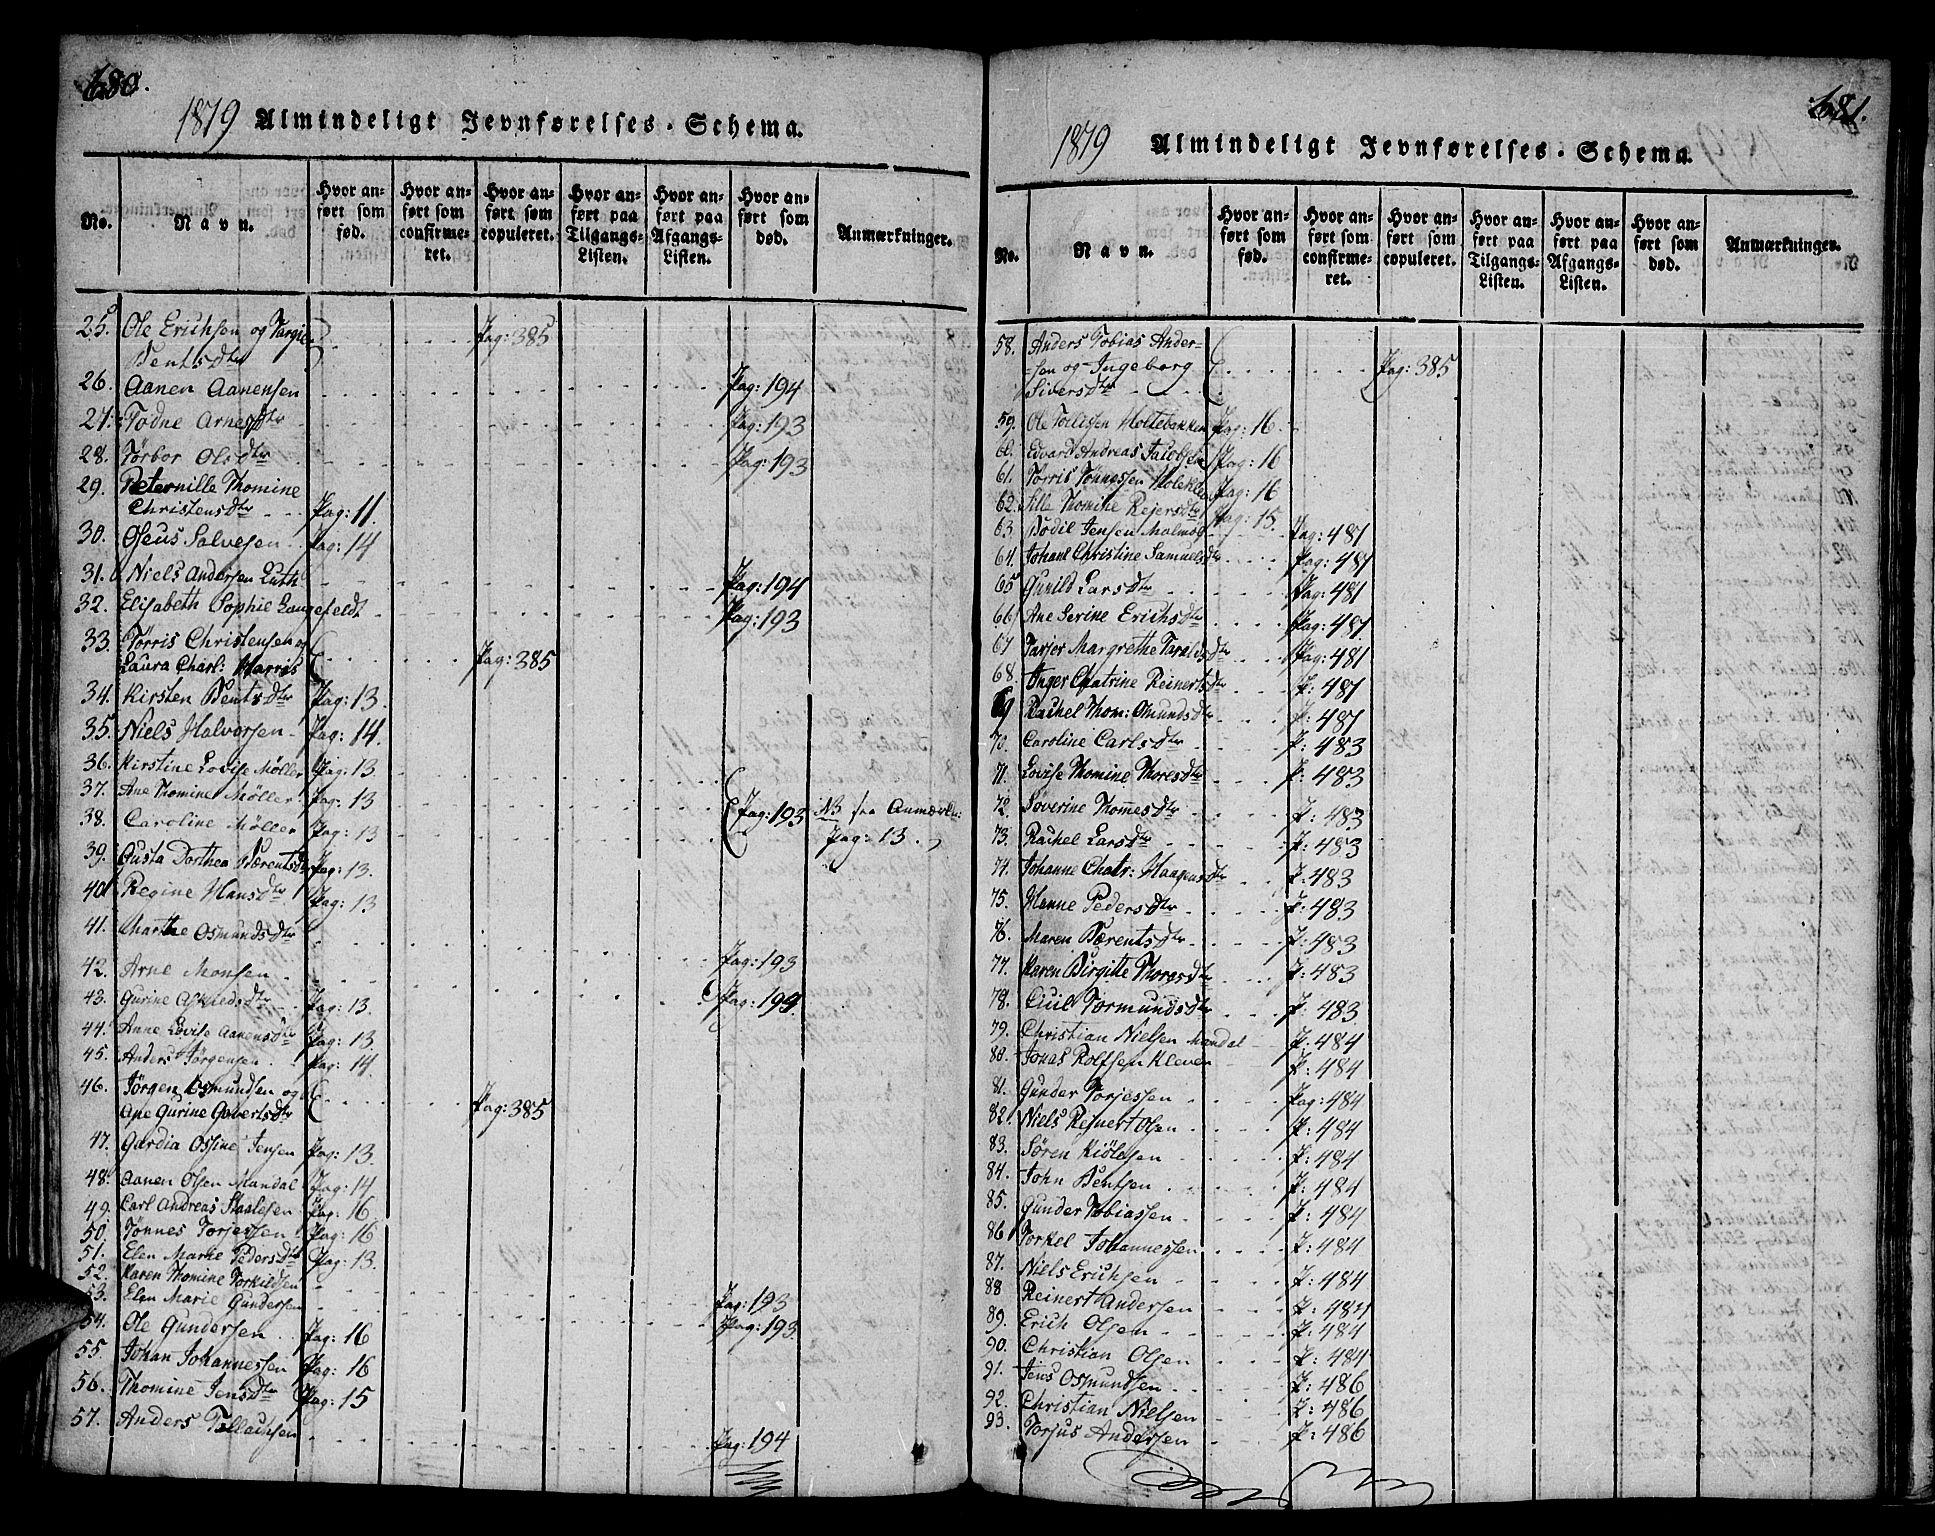 680.
1819 Almindeligt Jevnførelses-Schema.
No.
Navn.
Hvor anført som fød.
Hvor anført som confirmeret.
Hvor anført som copuleret.
Hvor anført paa Tilgangs-Listen.
Hvor anført paa Afgangs-Listen.
Hvor anført som død.
Anmærkninger.
25. Ole Erichsen og Targie
Bentsdtr Pag: 385
26. Aanen Aanensen Pag: 194
27. Todne Arnesdtr Pag: 193
28. Tørbor Olsdtr Pag: 193
29. Peternille Thomine
Christensdtr Pag: 11.
30. Salvesen Pag: 14
31. Niels Andersen Luth Pag: 194
32. Elisabeth Sophie Langefeldt Pag: 193
33. Tørris Christensen og
Laura Charl: Harris Pag: 385
34. Kirsten Bentsdtr Pag: 13.
35. Niels Halvorsen Pag: 14.
36. Kirstine Lovise Møller Pag: 13.
37. Ane Thomine Møller Pag: 13
38. Caroline Møller Pag: 13 Pag: 193 NB see Anmærkn:
Pag: 13.
39. Gusta Dorthea Bærentsdtr Pag: 13.
40 Regine Hansdtr Pag: 13
41. Marthe Osmundsdtr Pag: 193
42. Arne Monsen Pag: 194.
43. Gurine Askiedsdtr Pag: 13.
44. Anne Lovise Aanensdtr Pag: 13.
45. Anders Jørgensen Pag: 14.
46. Jørgen Osmundsen og
Ane Gurine Govertsdtr Pag: 385
47. Gardia Ossine Jensen Pag: 13.
48. Aanen Olsen Mandal Pag: 14
49. Carl Andreas Staalesen Pag: 16.
50. Tønnes Torjessen Pag: 16
51. Elen Marie Pedersdtr Pag: 13.
52. Karen Thomine Torkildsen
53. Elen Marie Gundersen Pag: 193
54. Ole Gundersen Pag: 16 Pag: 193
55. Johan Johannessen Pag: 16
56. Thomine Jensdtr Pag: 15
57. Anders Tellachsen Pag: 194
681.
1819 Almindeligt Jevnførelses-Schema.
No.
Navn.
Hvor anført som fød.
Hvor anført som confirmeret.
Hvor anført som copuleret.
Hvor anført paa Tilgangs-Listen.
Hvor anført paa Afgangs-Listen.
Hvor anført som død.
Anmærkninger.
58. Anders Tobias Ander-
-sen og Ingeborg
Siversdtr Pag: 385
59. Ole Holtebakken Pag: 16
60. Edvard Andreas Jacobsen Pag: 16
61. Tørris Tønnessen Pag: 16
62. Sille Thomine Rejersdtr Pag: 15.
63 Bodil Jensen Malmøe Pag: 481
64. Johane Christine Samuelsdtr Pag: 481
65 Gunild Larsdtr Pag: 481
66 Ane Serine Erichsdtr Pag: 481
67 Tarjer Margrethe Taraldsdtr Pag: 481
68. Inger Chatrine Reinertsdtr P: 481
69 Rachel Thom: Omundsdtr P: 481
70. Caroline Carlsdtr P: 483
71. Lovise Thomine Thoresdtr P: 483
72. Søverine Thomesdtr P: 483
73. Rachel Larsdtr P: 483
74. Johanne Chatr: Haagensdtr P: 483
75. Hanne Pedersdtr P: 483
76. Maren Bærentsdtr P: 483
77. Karen Birgitte Thoresdtr P: 483
78. Cicil Tormundsdtr P: 483
79. Christian Nielsen Mandal P: 484
80. Jonas Rolfsen Kleven P: 484
81. Gunder Torjessen Pag: 484
82. Niels Rejnert Olsen P: 484
83. Søren Kiølesen P: 484
84. John Bentsen P: 484
85. Gunder Tobiassen P: 484
86 Torkel Johannessen P: 484
87. Niels Erichsen P: 484
88 Reinert Andersen P: 484
89. Erich Olsen P: 484
90. Christian Olsen P: 484
91. Jens Osmundsen P: 486
92. Christian Nielsen P: 486
93. Torjus Andersen P: 486